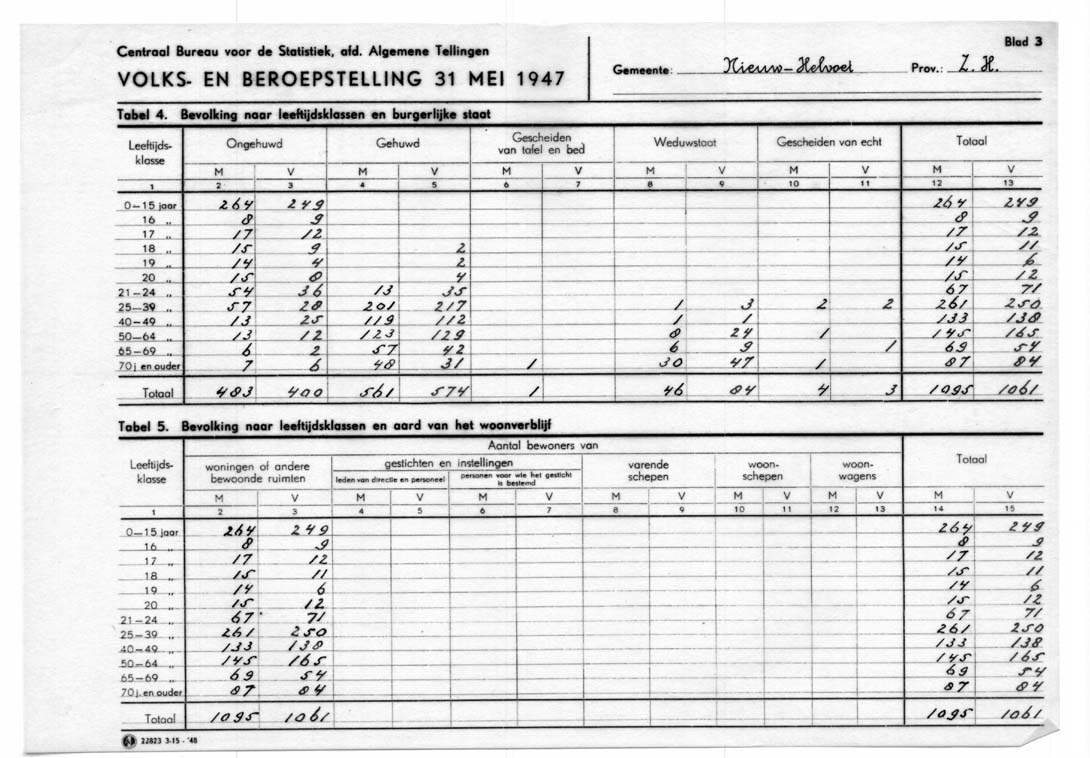 Centraal Bureau voor de Statistiek, afd. Algemene Tellingen
VOLKS- EN BEROEPSTELLING 31 MEI 1947
Gemeente: Nieuw-Helvoet Prov.: Z. H.
Blad 3
Tabel 4. Bevolking naar leeftijdsklassen en burgerlijke staat
Leeftijds-klasse Ongehuwd Gehuwd Gescheiden van tafel en bed Weduwstaat Gescheiden van echt Totaal
M V M V M V M V M V M V
1 2 3 4 5 6 7 8 9 10 11 12 13
0—15 jaar 264 249 264 249
16 „ 8 9 8 9
17 „ 17 12 17 12
18 „ 15 9 2 15 11
19 „ 14 4 2 14 6
20 „ 15 8 4 15 12
21—24 „ 54 36 13 35 67 71
25—39 „ 57 28 201 217 1 3 2 2 261 250
40—49 „ 13 25 119 112 1 1 133 138
50—64 „ 13 12 123 129 8 24 1 145 165
65—69 „ 6 2 57 42 6 9 1 69 54
70 j en ouder 7 6 48 31 1 30 47 1 87 84
Totaal 483 400 561 574 1 46 84 4 3 1095 1061
Tabel 5. Bevolking naar leeftijdsklassen en aard van het woonverblijf
Aantal bewoners van
Leeftijds-klasse woningen of andere bewoonde ruimten gestichten en instellingen varende schepen woon-schepen woon-wagens Totaal
leden van directie en personeel personen voor wie het gesticht is bestemd
M V M V M V M V M V M V M V
1 2 3 4 5 6 7 8 9 10 11 12 13 14 15
0—15 jaar 264 249 264 249
16 „ 8 9 8 9
17 „ 17 12 17 12
18 „ 15 11 15 11
19 „ 14 6 14 6
20 „ 15 12 15 12
21—24 „ 67 71 67 71
25—39 „ 261 250 261 250
40—49 „ 133 138 133 138
50—64 „ 145 165 145 165
65—69 „ 69 54 69 54
70 j. en ouder 87 84 87 84
Totaal 1095 1061 1095 1061
22823 3-15 - '48